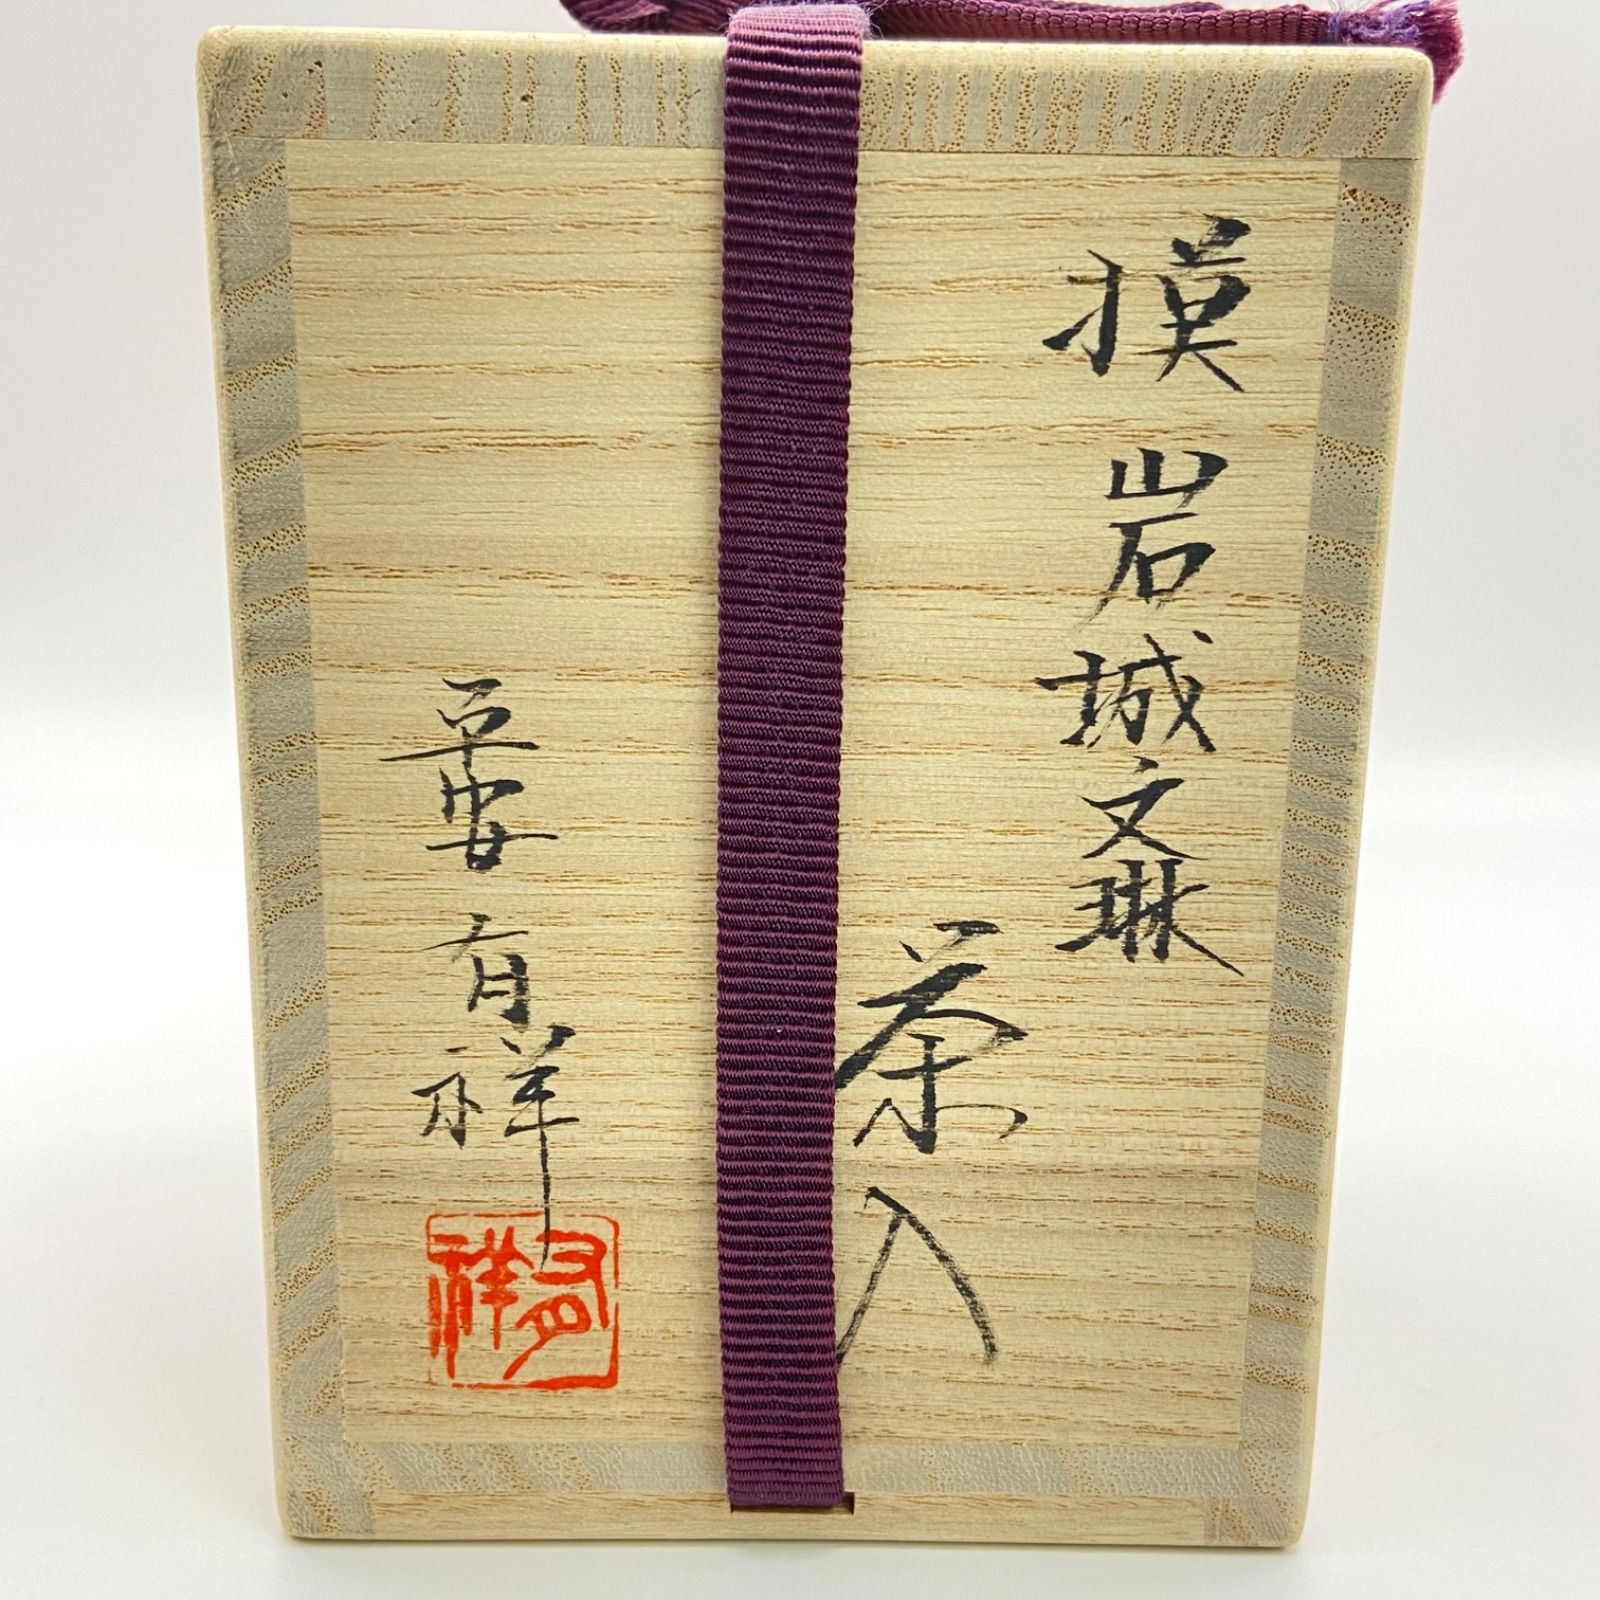 摸 岩城文琳
茶入
平安 有祥
有祥